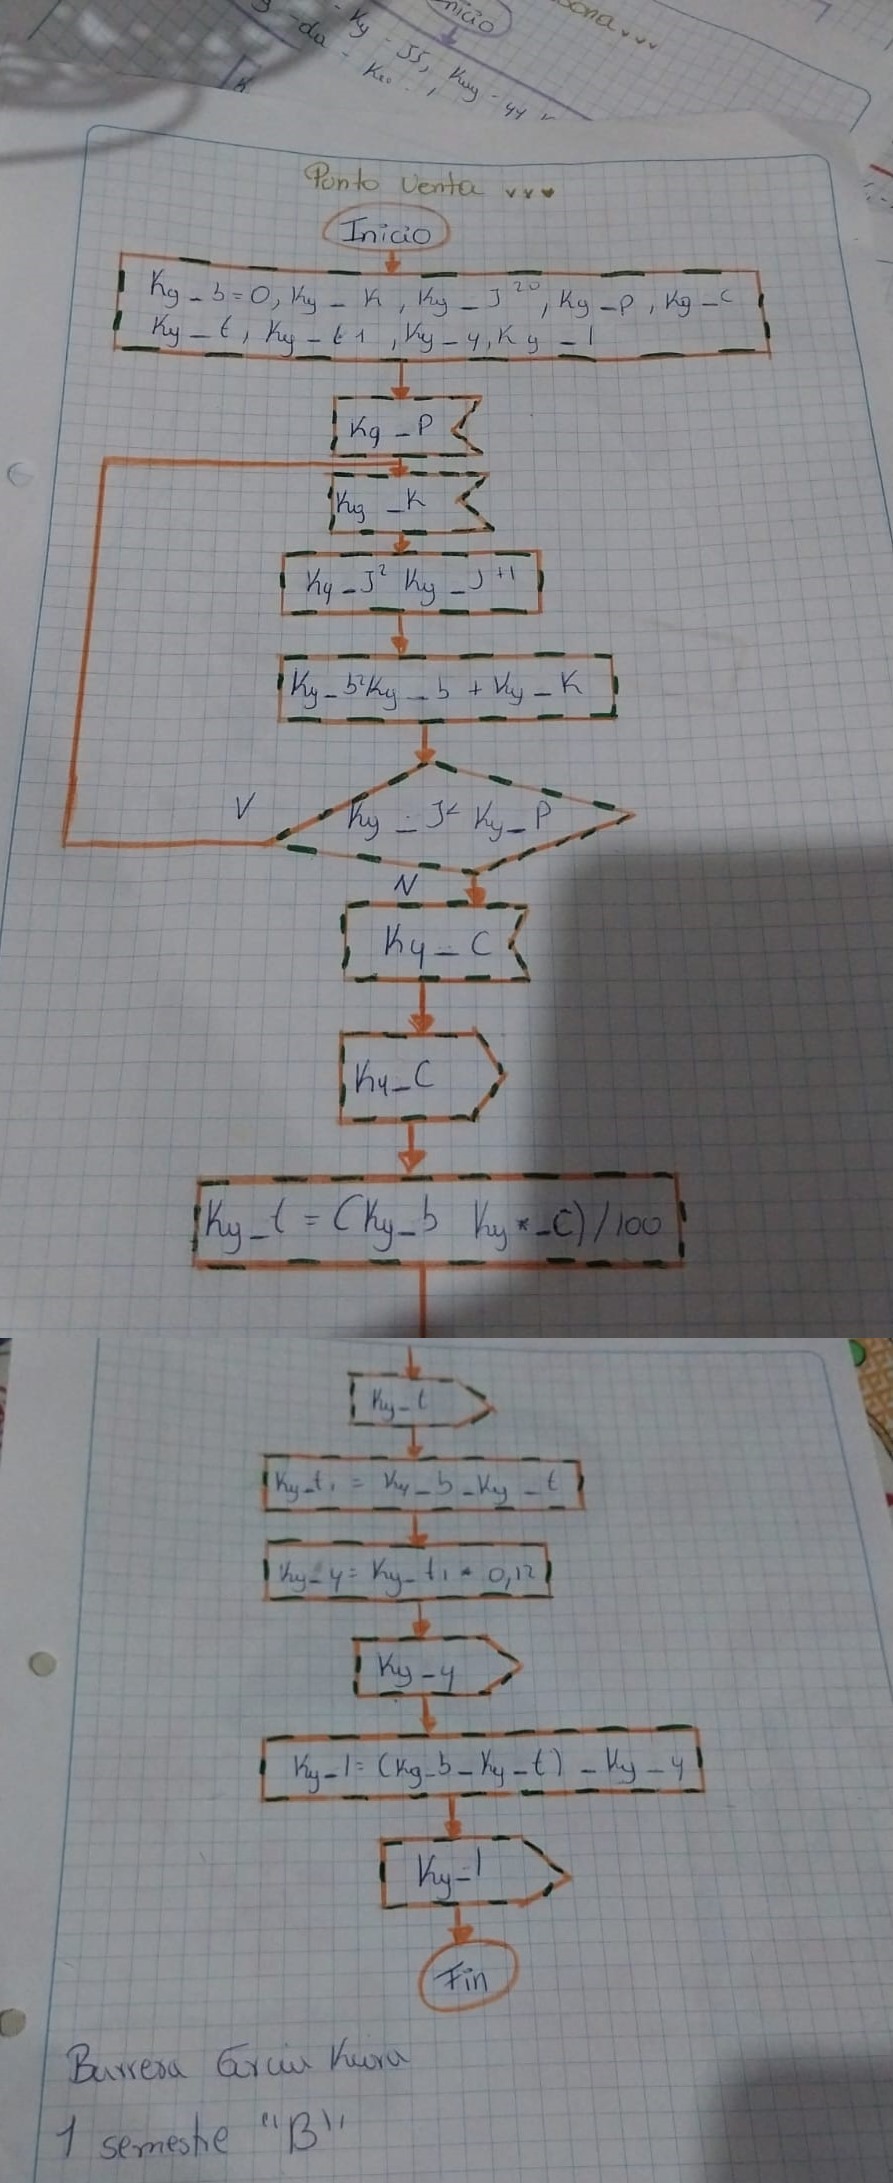 Inicio
Ky - J5, Kuy - 44
-da - K
Punto venta
Inicio
Kg_b=0, Ky_K, Ky_J²⁰, Kg_P, Kg_C
Ky_t, Ky_t1, Ky_y, Ky_1
Kg_P
Ky_K
Ky_J² Ky_J⁺¹
Ky_b² Ky_b + Ky_K
V
Ky_J< Ky_P
N
Ky_C
Ky_C
Ky_t = (Ky_b Ky*_C)/100
Ky_t
Ky_t1 = Ky_b_Ky_t
Ky_y = Ky_t1 * 0,12
Ky_y
Ky_1=(Kg_b_Ky_t)_Ky_y
Ky_1
Fin
Barrera Garcia
1 semestre "B"